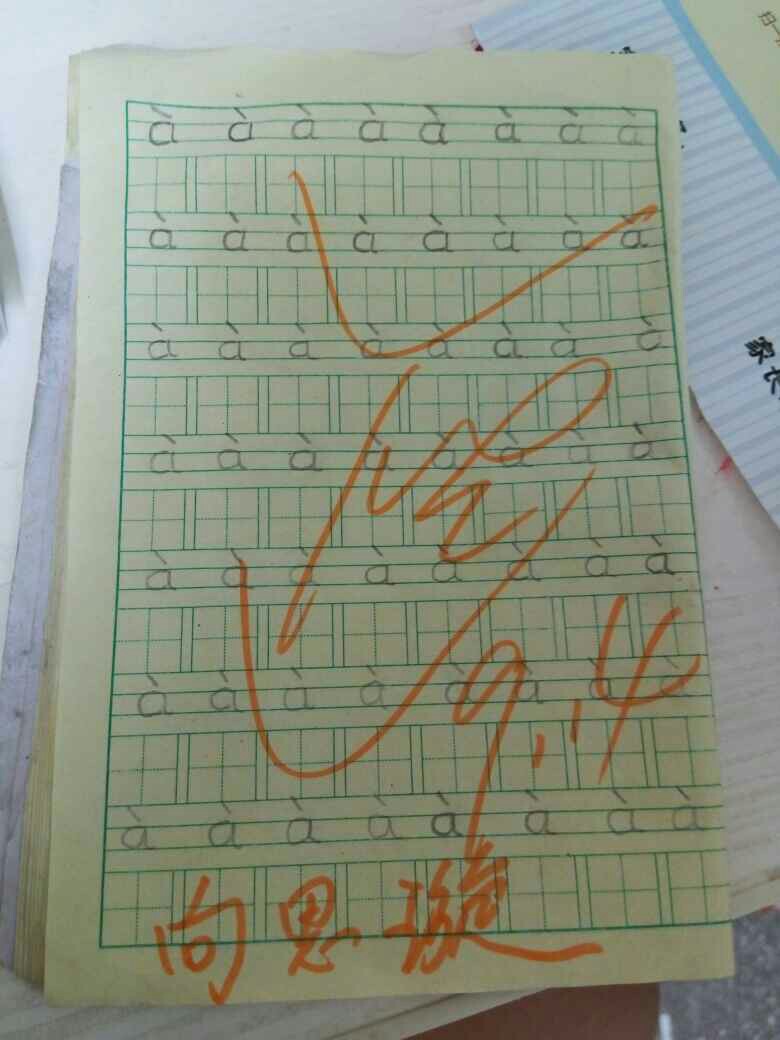 à à à à à à à à
à à à à à à à à
à à à à à à à à
à à à à à à à à
à à à à à à à à
à à à à à à à à
à à à à à à à à
9.14
向思璇
家长